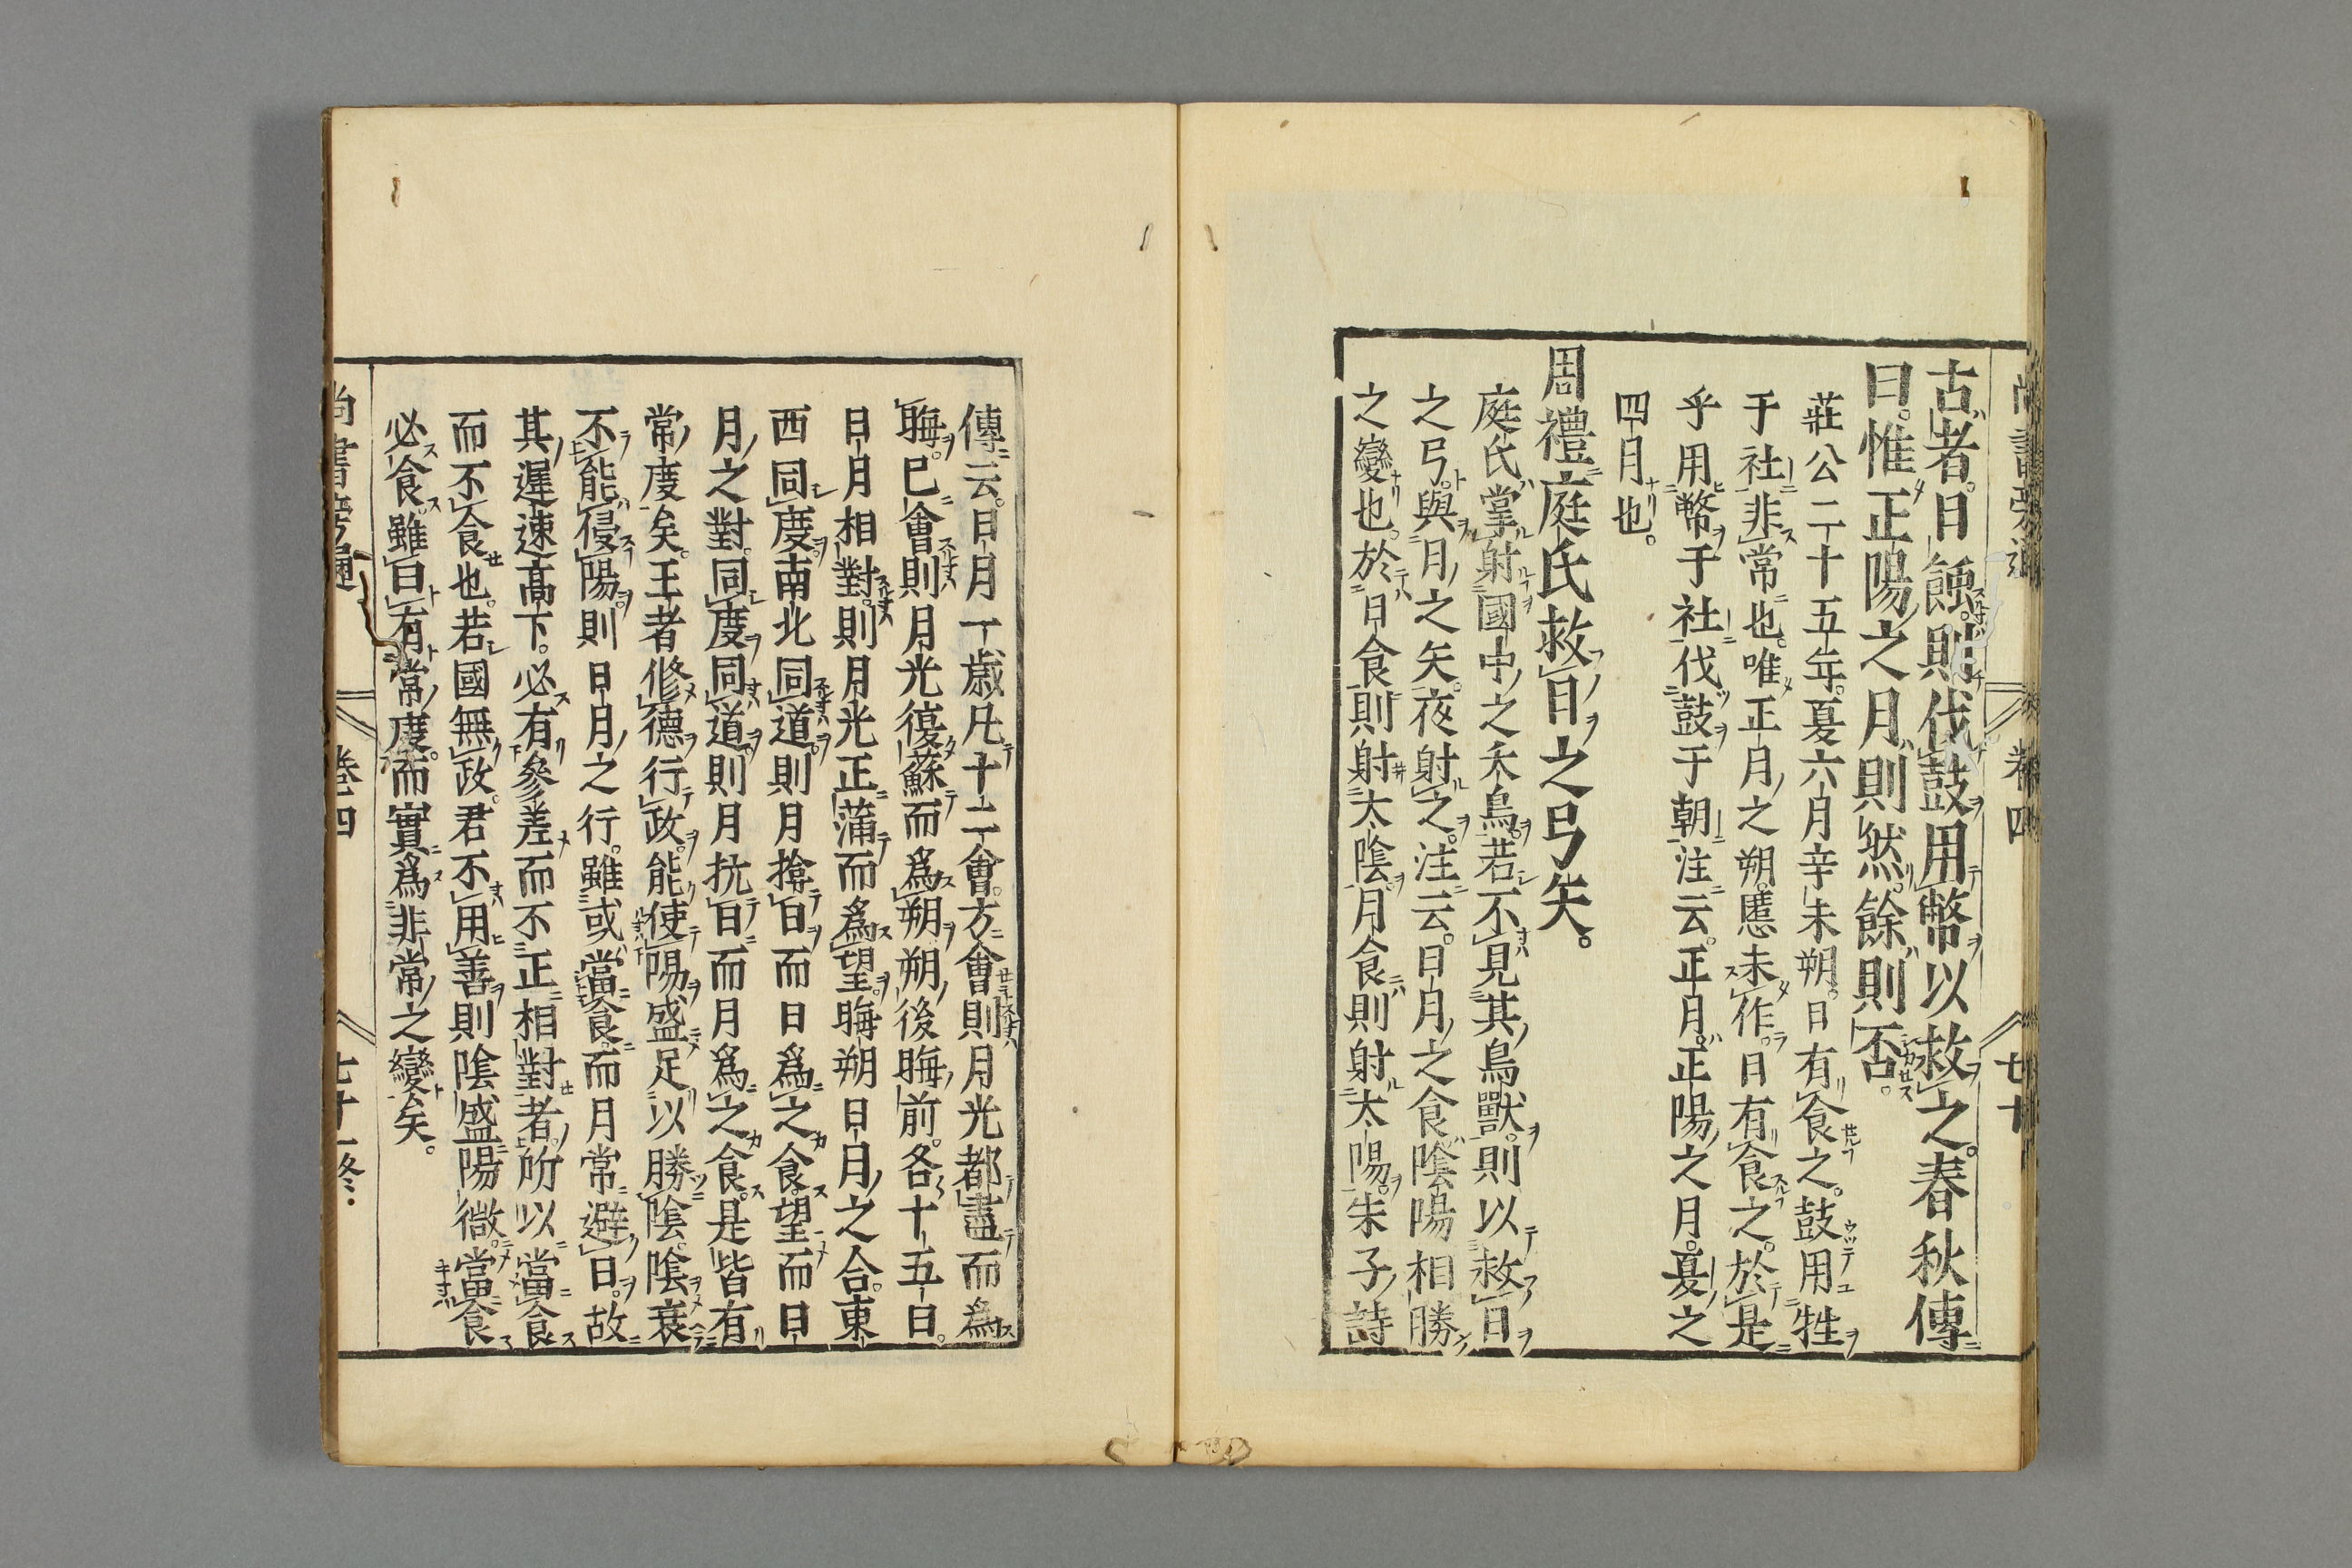 古者日蝕則伐鼓用幣以救之。春秋傳
曰。惟正陽之月則然。餘則否。
莊公二十五年。夏六月辛未朔。日有食之。鼓用牲
于社。非常也。唯正月之朔。慝未作。日有食之。於是
乎用幣于社。伐鼓于朝。注云。正月。正陽之月。夏之
四月也。
周禮庭氏救日之弓矢。
庭氏掌射國中之夭鳥。若不見其鳥獸。則以救日
之弓。與月之矢。夜射之。注云。日月之食。陰陽相勝
之變也。於日食則射太陰。月食則射太陽。朱子詩
卷四
七十
傳云。日月一歲凡十二會。方會則月光都盡而爲
晦。已會則月光復蘇而爲朔。朔後晦前。各十五日。
日月相對。則月光正滿而爲望。晦朔日月之合。東
西同度。南北同道。則月揜日而日爲之食。望而日
月之對。同度同道。則月抗日而月爲之食。是皆有
常度矣。王者修德行政。能使陽盛足以勝陰。陰衰
不能侵陽。則日月之行。雖或當食。而月常避日。故
其遲速高下。必有參差而不正相對者。所以當食
而不食也。若國無政。君不用善。則陰盛陽微。當食
必食。雖曰有常度。而實爲非常之變矣。
尚書旁通
卷四
七十一終